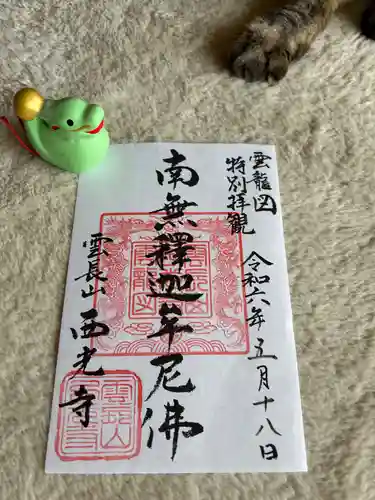 雲龍図
特別拝観
令和六年五月十八日
南無釋迦牟尼佛
雲長山
西光寺